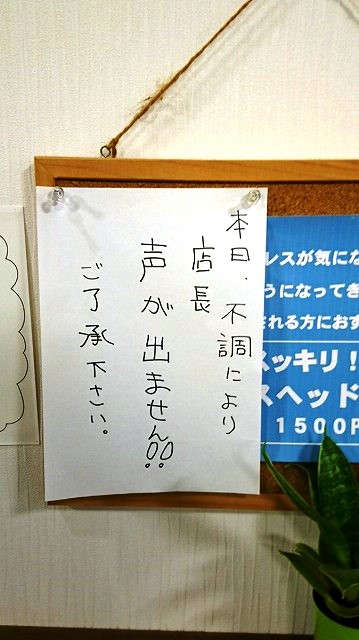 本日、不調により
店長
声が出ません!!
ご了承下さい。
レスが気にな
うになってき
れる方におす
スッキリ!
スヘッド
1500